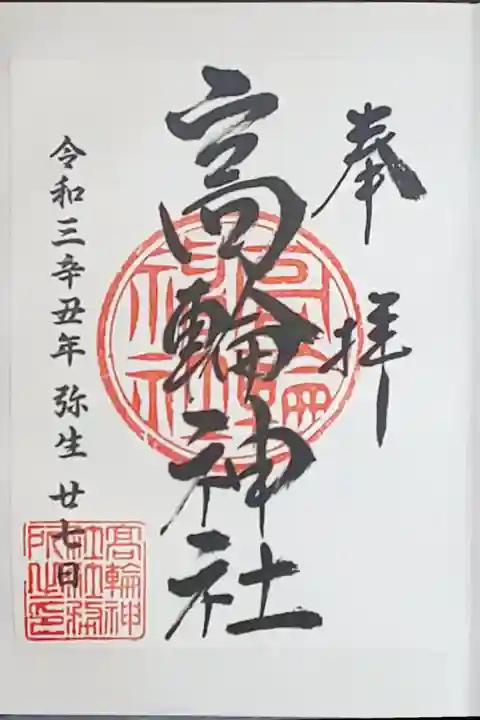 奉拝
高輪神社
令和三辛丑年 弥生 廿七日
高輪神社
高輪神
社社務
所之印